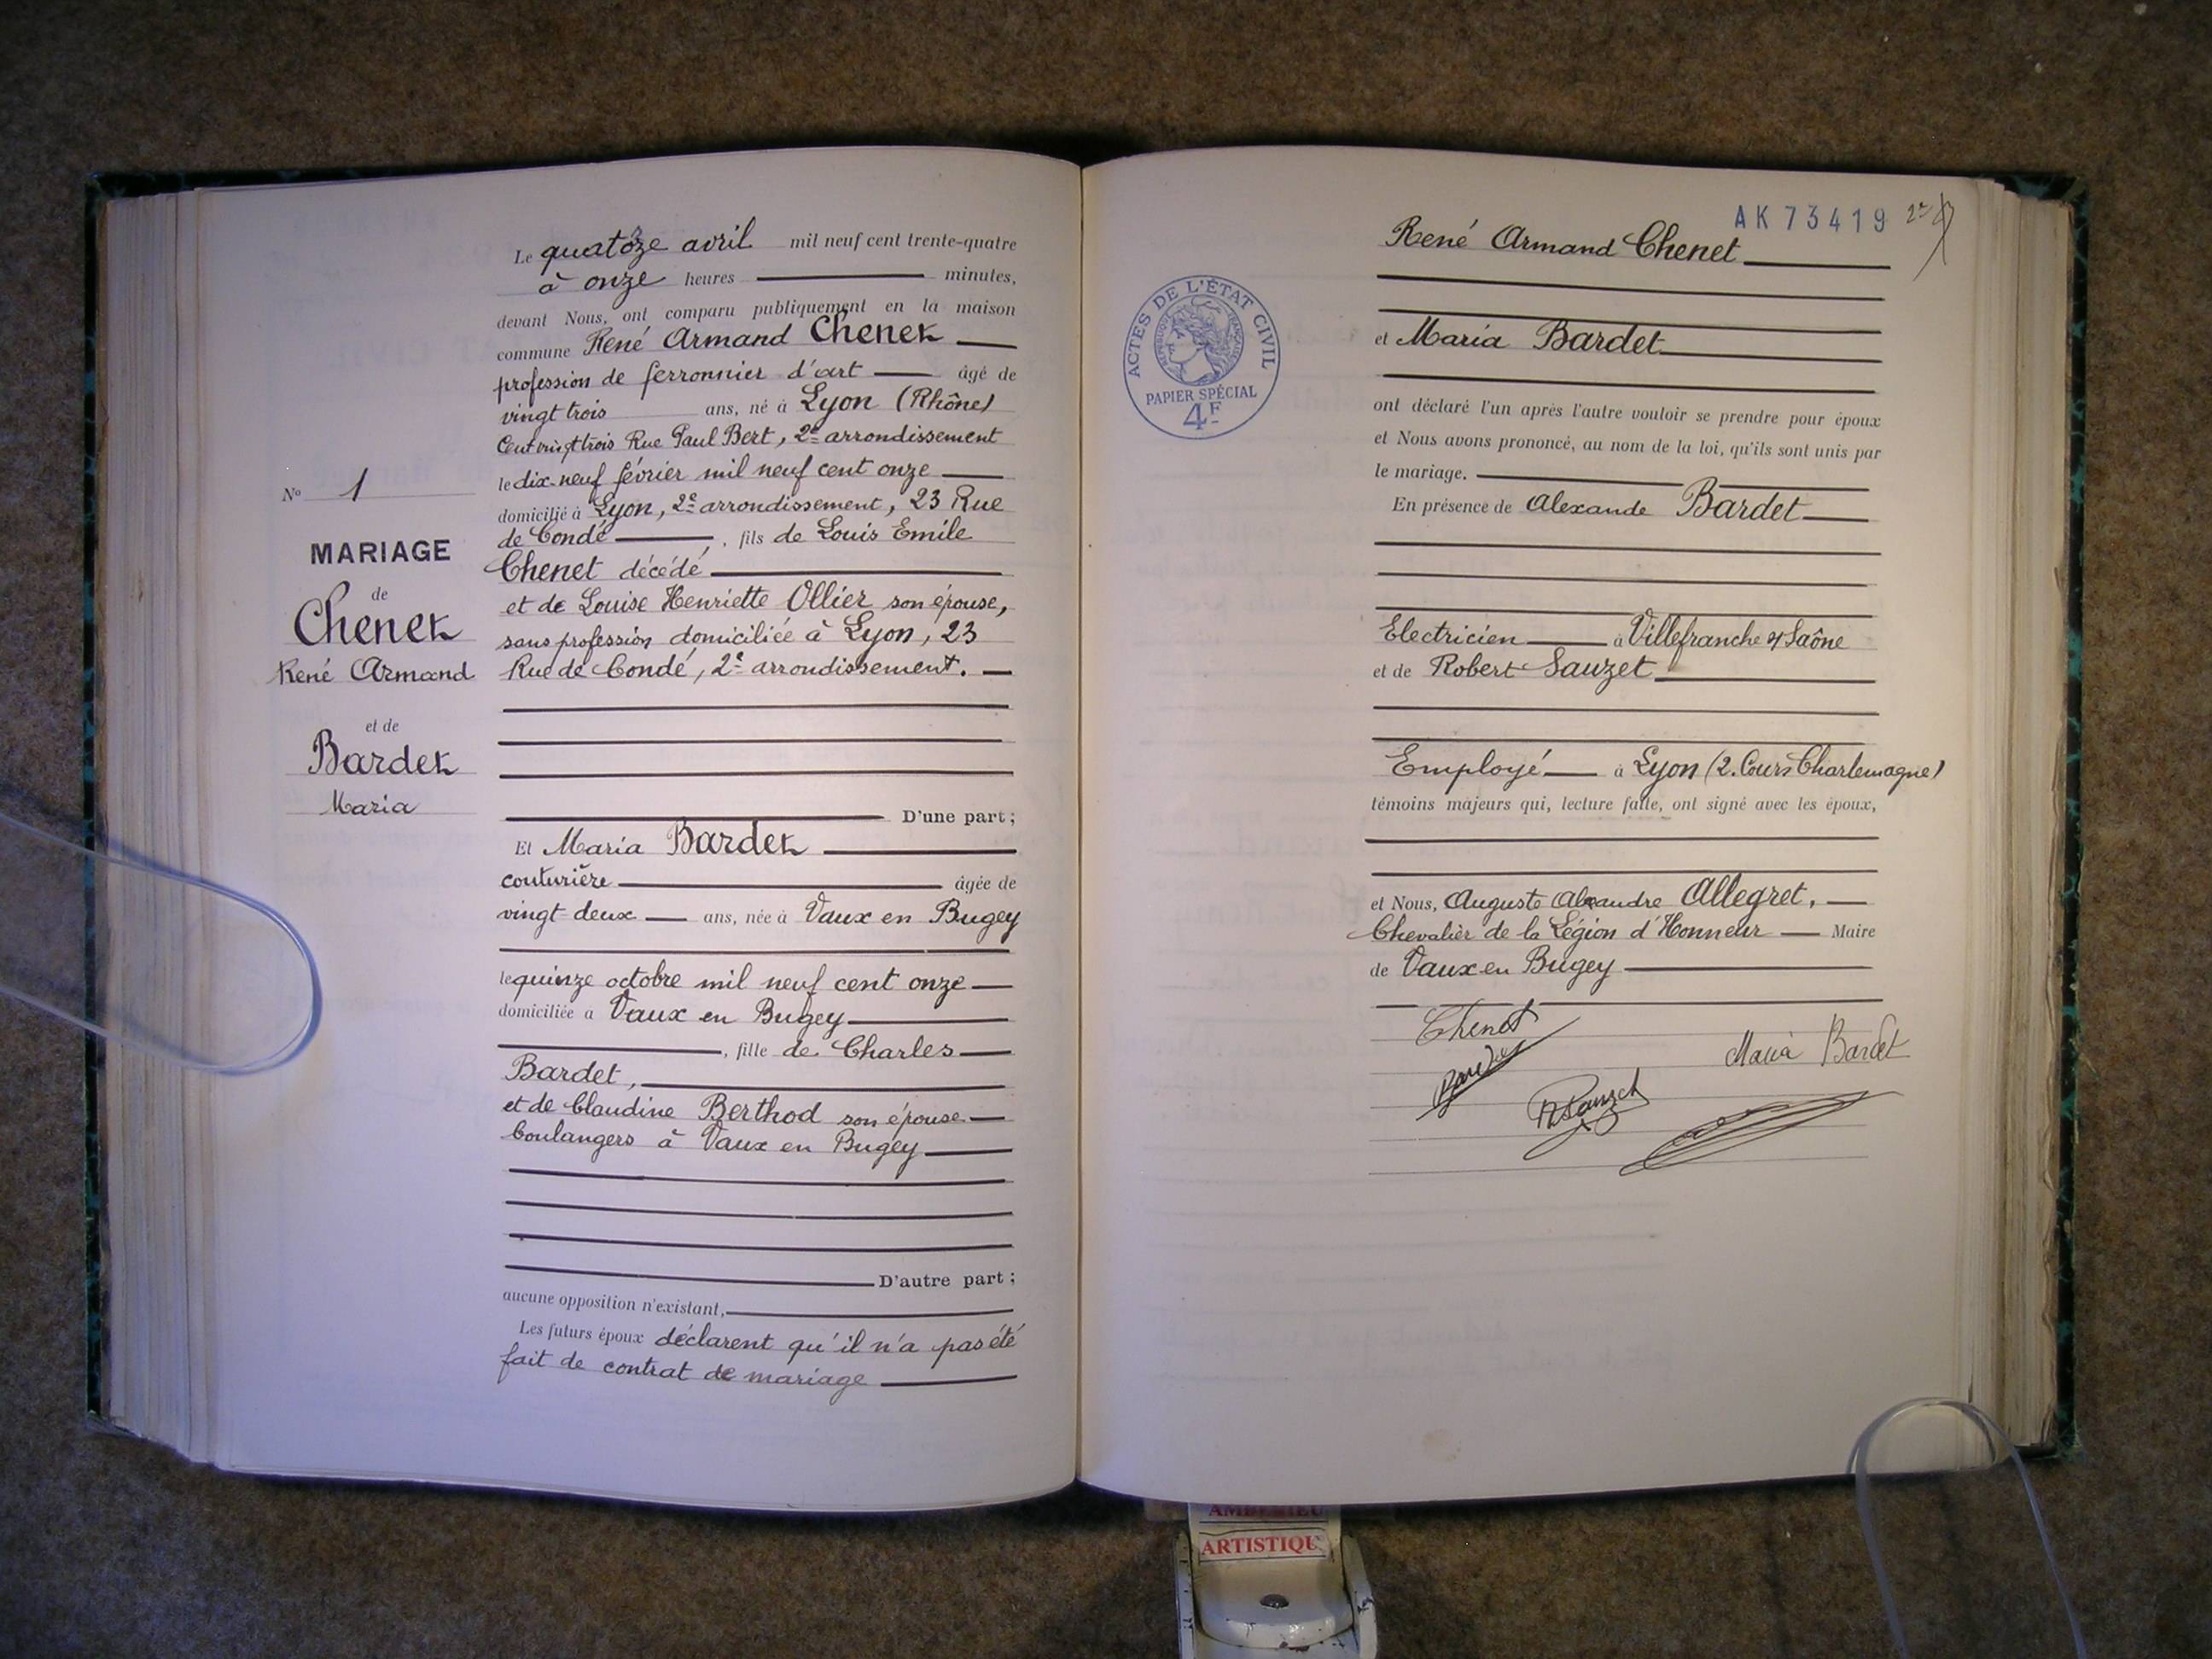 Le quatorze avril mil neuf cent trente-quatre
à onze heures minutes,
devant Nous, ont comparu publiquement en la maison
commune René Armand Chenet
profession de ferronnier d'art âgé de
vingt trois ans, né à Lyon (Rhône)
Cent vingt trois Rue Paul Bert, 2e arrondissement
le dix-neuf février mil neuf cent onze
domicilié à Lyon, 2e arrondissement, 23 Rue
de Condé, fils de Louis Emile
Chenet décédé
et de Louise Henriette Ollier son épouse,
sans profession domiciliée à Lyon, 23
Rue de Condé, 2e arrondissement.
No 1
MARIAGE
de
Chenet
René Armand
et de
Bardet
Maria
D'une part;
Et Maria Bardet
couturière âgée de
vingt-deux ans, née à Vaux en Bugey
le quinze octobre mil neuf cent onze
domiciliée à Vaux en Bugey
, fille de Charles
Bardet,
et de Claudine Berthod son épouse
boulangers à Vaux en Bugey
D'autre part;
aucune opposition n'existant,
Les futurs époux déclarent qu'il n'a pas été
fait de contrat de mariage
AK 73419
René Armand Chenet
ACTES DE L'ÉTAT CIVIL
RÉPUBLIQUE FRANÇAISE
PAPIER SPÉCIAL
4F
et Maria Bardet
ont déclaré l'un après l'autre vouloir se prendre pour époux
et Nous avons prononcé, au nom de la loi, qu'ils sont unis par
le mariage.
En présence de Alexande Bardet
Electricien à Villefranche s/ Saône
et de Robert Sauzet
Employé à Lyon (2. Cours Charlemagne)
témoins majeurs qui, lecture faite, ont signé avec les époux,
et Nous, Auguste Alexandre Allegret,
Chevalier de la Légion d'Honneur Maire
de Vaux en Bugey
Chenet
Maria Bardet
Bardet
R Sauzet
AMBERIEU
ARTISTIQU